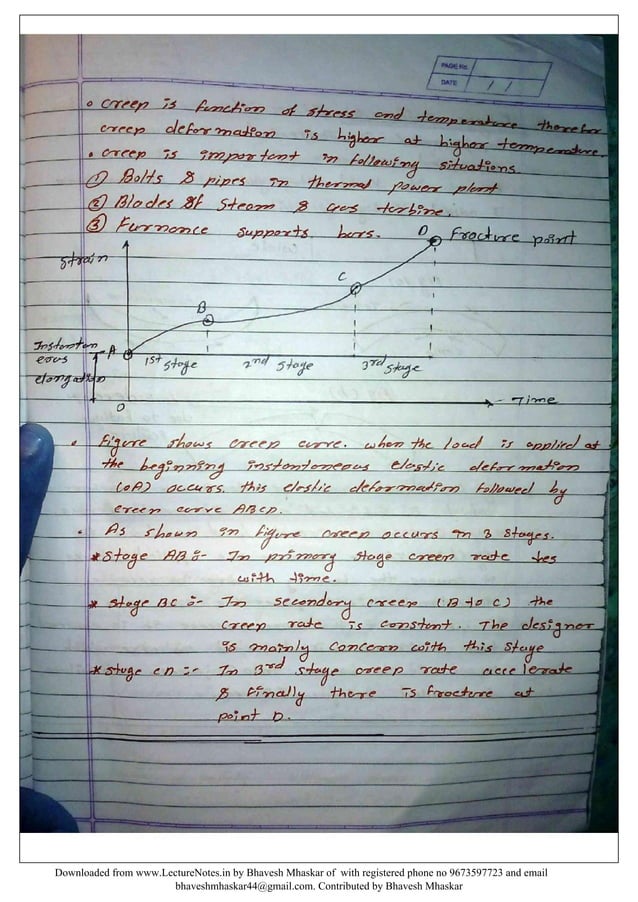 PAGE No.
DATE / /
• creep is function of stress and temperature therefor
creep deformation is higher at higher temperature.
• creep is important in following situations.
① Bolts & pipes in thermal power plant
② Blades of Steam & Gas turbine.
③ Furnance supports bars.
D Fracture point
Strain
C
B
Instantan
eous
elongation
A
1st stage 2nd stage 3rd stage
O
Time
• Figure shows creep curve. when the load is applied at
the beginning instantaneous elastic deformation
(OA) occurs. this elastic deformation followed by
creep curve ABCD.
• As shown in figure creep occurs in 3 stages.
* Stage AB :- In primary stage creep rate
with time.
* stage BC :- In secondary creep (B to C) the
creep rate is constant. The designer
is mainly concern with this stage
* stage CD :- In 3rd stage creep rate accelerate
& finally there is fracture at
point D.
Downloaded from www.LectureNotes.in by Bhavesh Mhaskar of with registered phone no 9673597723 and email
bhaveshmhaskar44@gmail.com. Contributed by Bhavesh Mhaskar